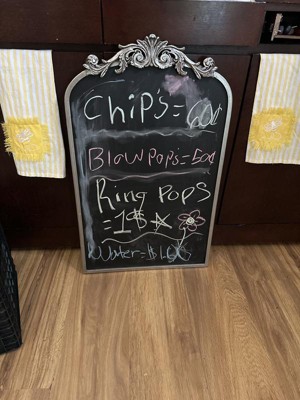 Chip's = 60¢
Blow pop's = 50¢
Ring Pops
= 1$
Water = $1.00